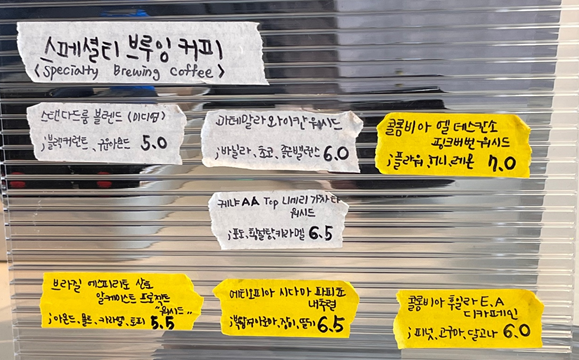 스페셜티 브루잉 커피
<Specialty Brewing coffee>
스탠다드룸 블렌드 (미디엄)
;블랙커런트, 구운아몬드 5.0
과테말라 와이칸 워시드
;바닐라, 초코, 좋은밸런스 6.0
콜롬비아 엘 데스칸소
핑크버번 워시드
;플라워, 허니, 레몬 7.0
케냐 AA Top 니에리 가차타
워시드
;포도, 흑설탕, 카라멜 6.5
브라질 에스피리토 산토
알케미스트 프로젝트
"워시드"
;아몬드, 몰트, 카라멜, 토피 5.5
에티오피아 시다마
내추럴
자두, 딸기 6.5
콜롬비아 후일라 E.A
디카페인
;피넛, 고구마, 달고나 6.0